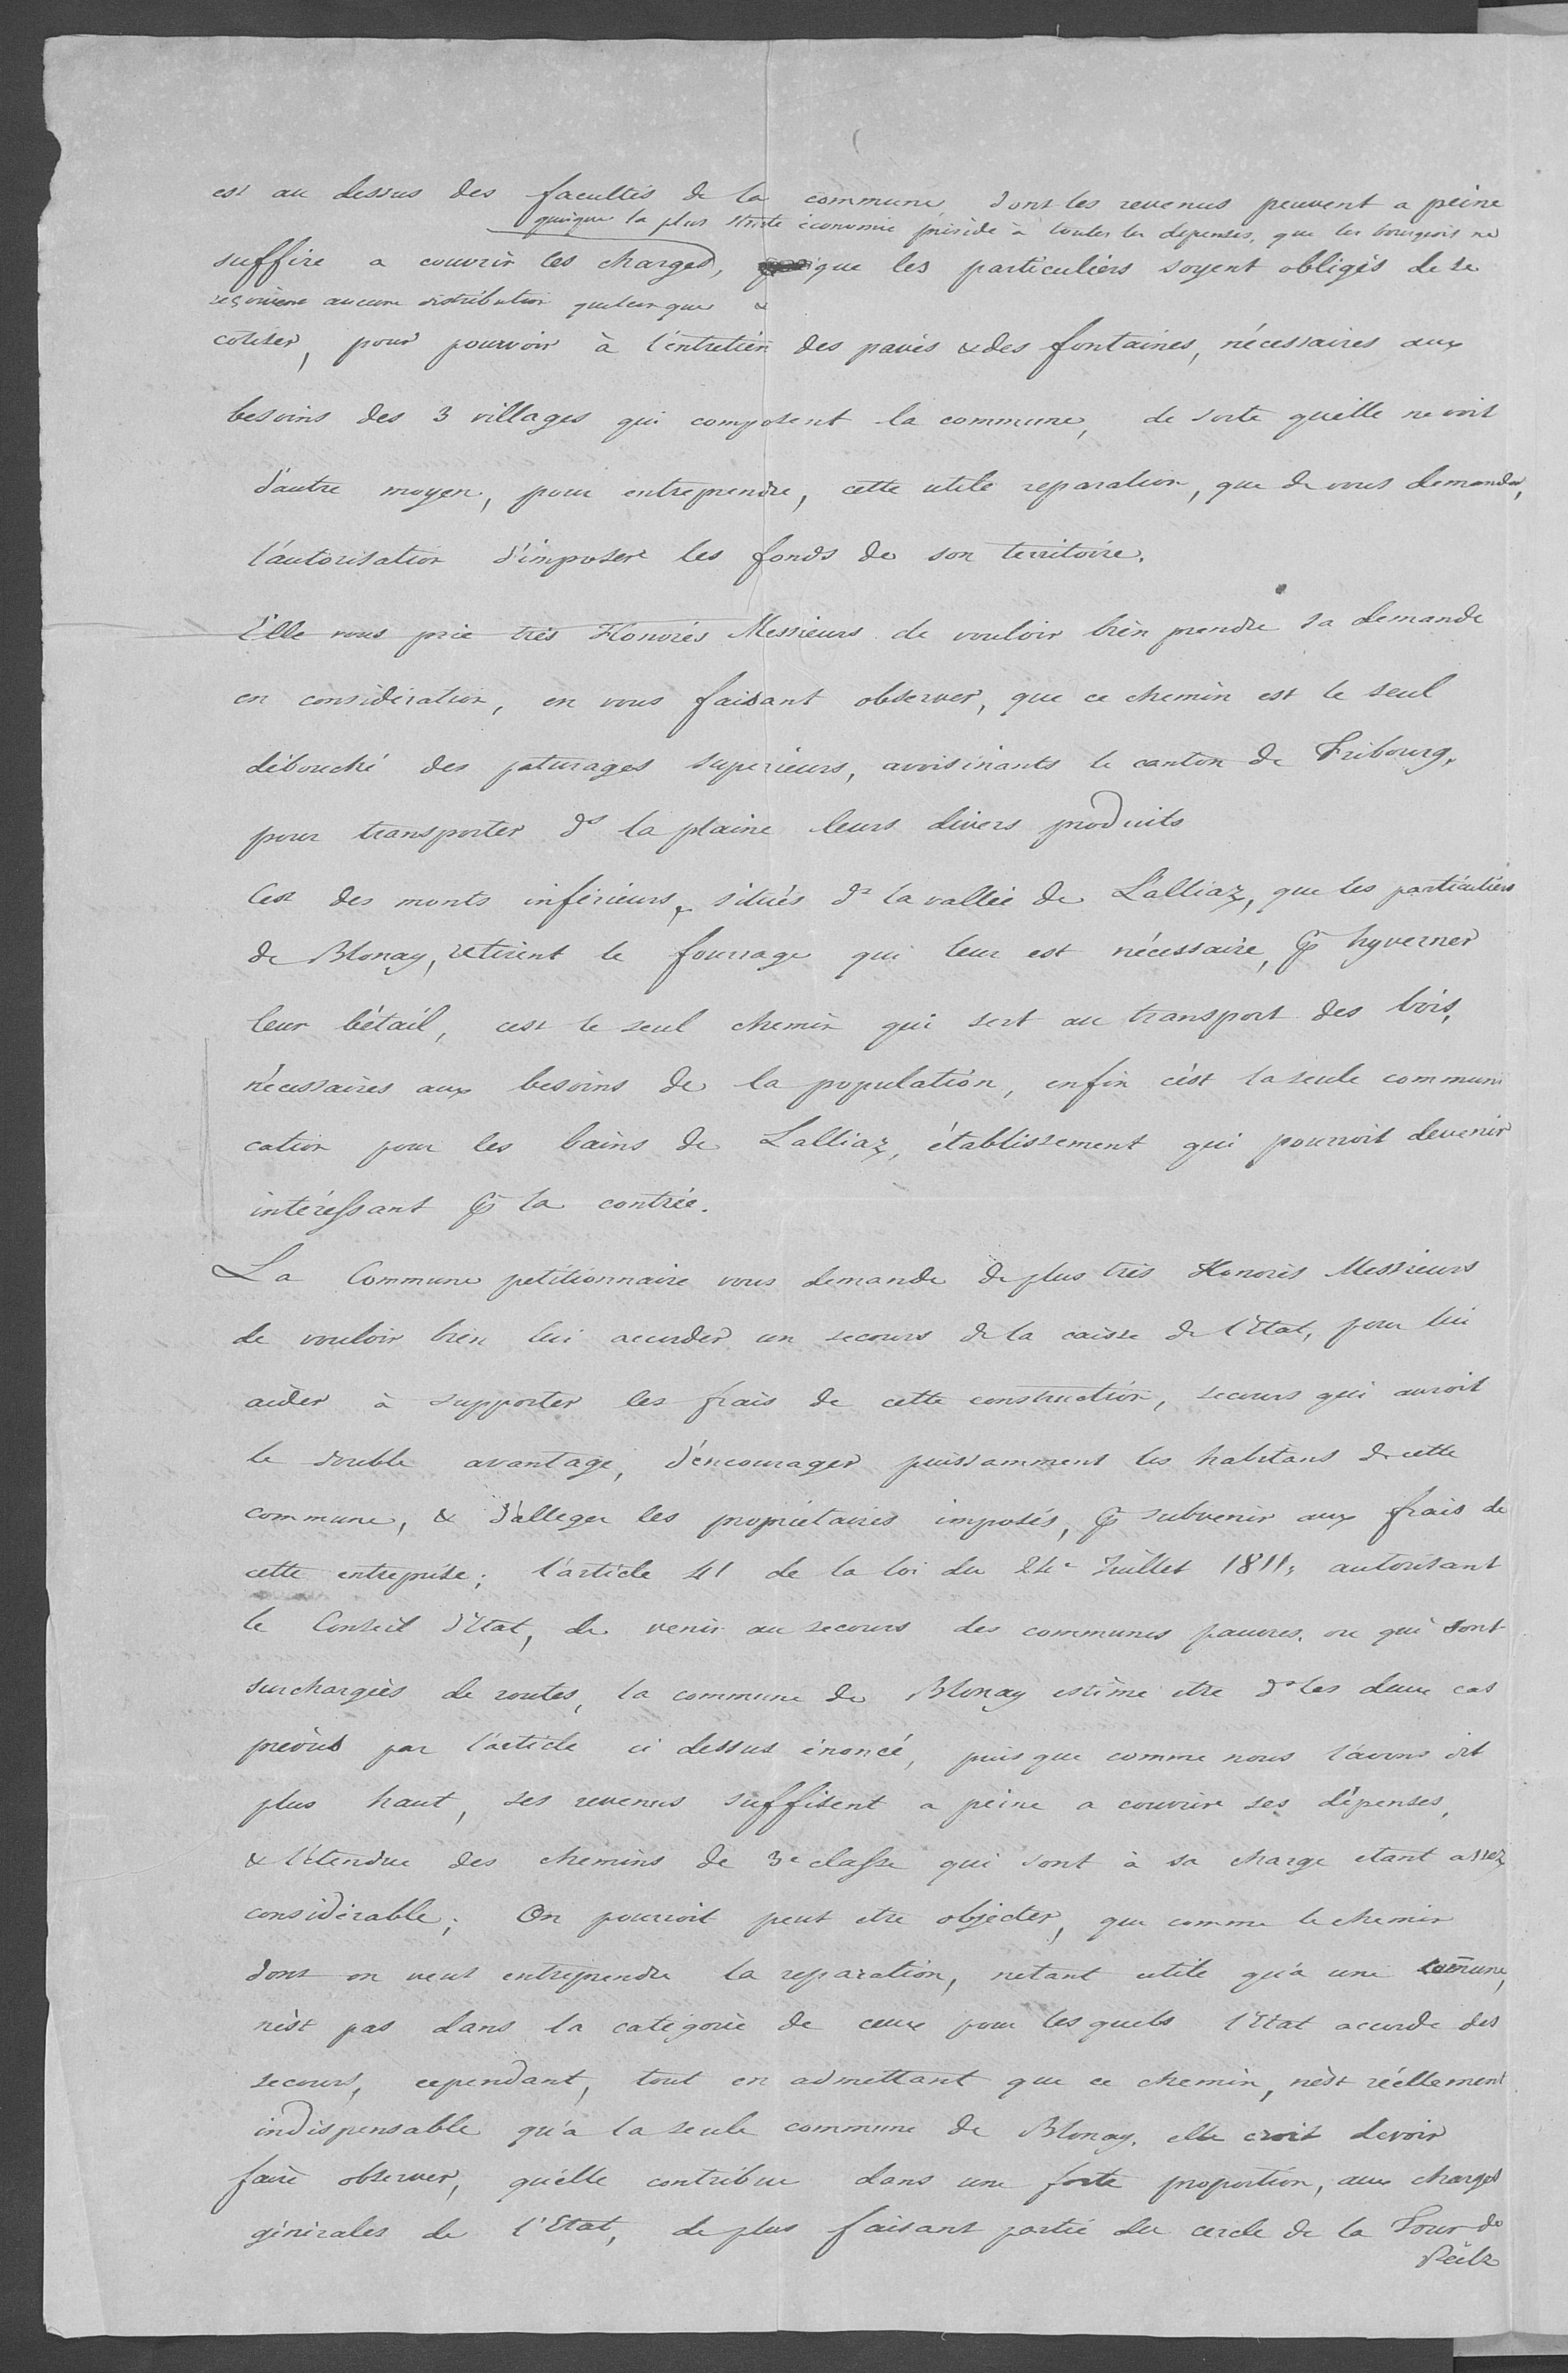 est au dessus des facultés de la commune, dont les revenus peuvent a peine
quoique la plus stricte économie préside à toutes les dépenses, que les bourgeois ne
suffire a couvrir les charges, que les particuliers soyent obligés de se
reçoivent aucune distribution quelconque &
cotiser, pour pourvoir à l'entretien des pavés & des fontaines, nécessaires aux
besoins des 3 villages qui composent la commune, de sorte qu'elle ne voit
d'autre moyen, pour entreprendre, cette utile reparation, que de vous demander,
l'autorisation d'imposer les fonds de son territoire.
Elle vous prie très Honorés Messieurs de vouloir bien prendre sa demande
en considération, en vous faisant observer, que ce chemin est le seul
débouché des paturages superieurs, avoisinants le canton de Fribourg,
pour transporter ds la plaine leurs divers produits
C'est des monts inférieurs, situés ds la vallée de L'alliaz, que les particuliers
de Blonay, retirent le fourrage qui leur est nécessaire, pr hyverner
leur bétail, cest le seul chemin qui sert au transport des bois,
nécessaires aux besoins de la population, enfin c'est la seule communi
cation pour les bains de Lalliaz, établissement qui pourroit devenir
intéressant pr la contrée.
La Commune petitionnaire vous demande de plus très Honorés Messieurs
de vouloir bien lui accorder un secours de la caisse de l'Etat, pour lui
aider à supporter les frais de cette construction, secours qui auroit
le double avantage, d'encourager puissamment les habitans de cette
commune, & d'alleger les propriétaires imposés, pr subvenir aux frais de
cette entreprise; l'article 41 de la loi du 24e Juillet 1811, autorisant
le Conseil d'Etat, de venir au secours des communes pauvres, ou qui sont
surchargées de routes, la commune de Blonay estime etre ds les deux cas
prévus par l'article ci dessus énoncé, puis que comme nous l'avons dit
plus haut, ses revenus suffisent a peine a couvrir ses dépenses,
& l'étendue des chemins de 3e classe qui sont à sa charge etant assez
considérable; On pourroit peut etre objecter, que comme le chemin
dont on veut entreprendre la reparation, netant utile qu'a une com̄une,
n'est pas dans la catégorie de ceux pour lesquels l'Etat accorde des
secours, cependant, tout en admettant que ce chemin, n'est réellement
indispensable qu'a la seule commune de Blonay, elle croit devoir
faire observer, qu'elle contribue dans une forte proportion, aux charges
générales de l'Etat, de plus faisant partie du cercle de la Tour de
Peilz